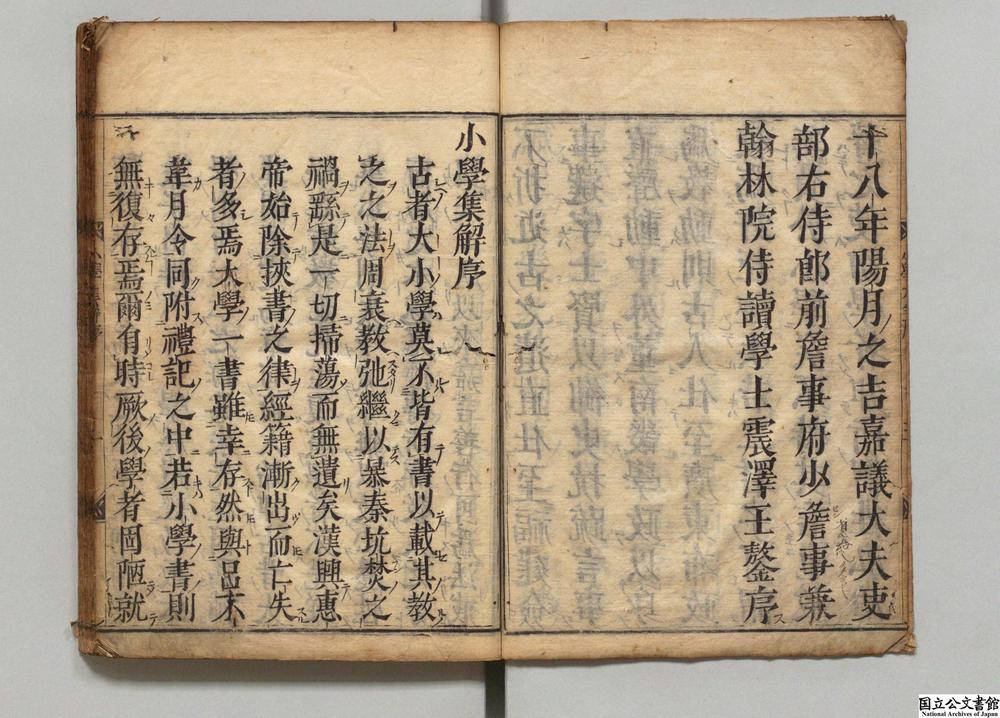 十八年陽月之吉嘉議大夫吏
部右侍郎前詹事府少詹事兼
翰林院侍讀學士震澤王鏊序
小學集解序
古者大小學莫不皆有書以載其教
之之法周衰教弛繼以暴秦坑焚之
禍繇是一切掃蕩而無遺矣漢興惠
帝始除挾書之律經籍漸出而亡失
者多焉大學一書雖幸存然與呂不
韋月令同附禮記之中若小學書則
無復存焉爾有時厥後學者固陋就
国立公文書館
National Archives of Japan